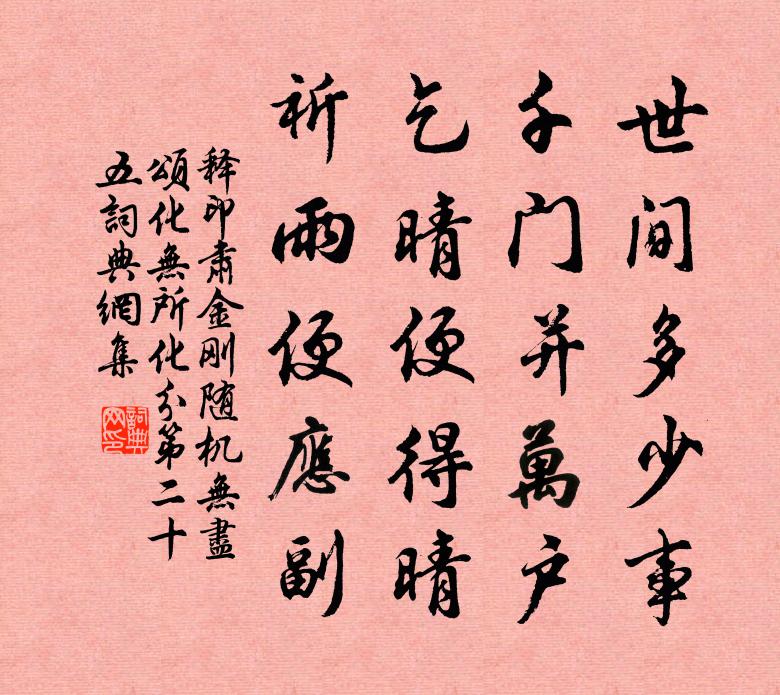 世间多少事
千门并萬户
乞晴便得晴
祈雨便應副
释印肃金刚随机無盡
頌化無所化分第二十
五詞典網集
詞典
网印